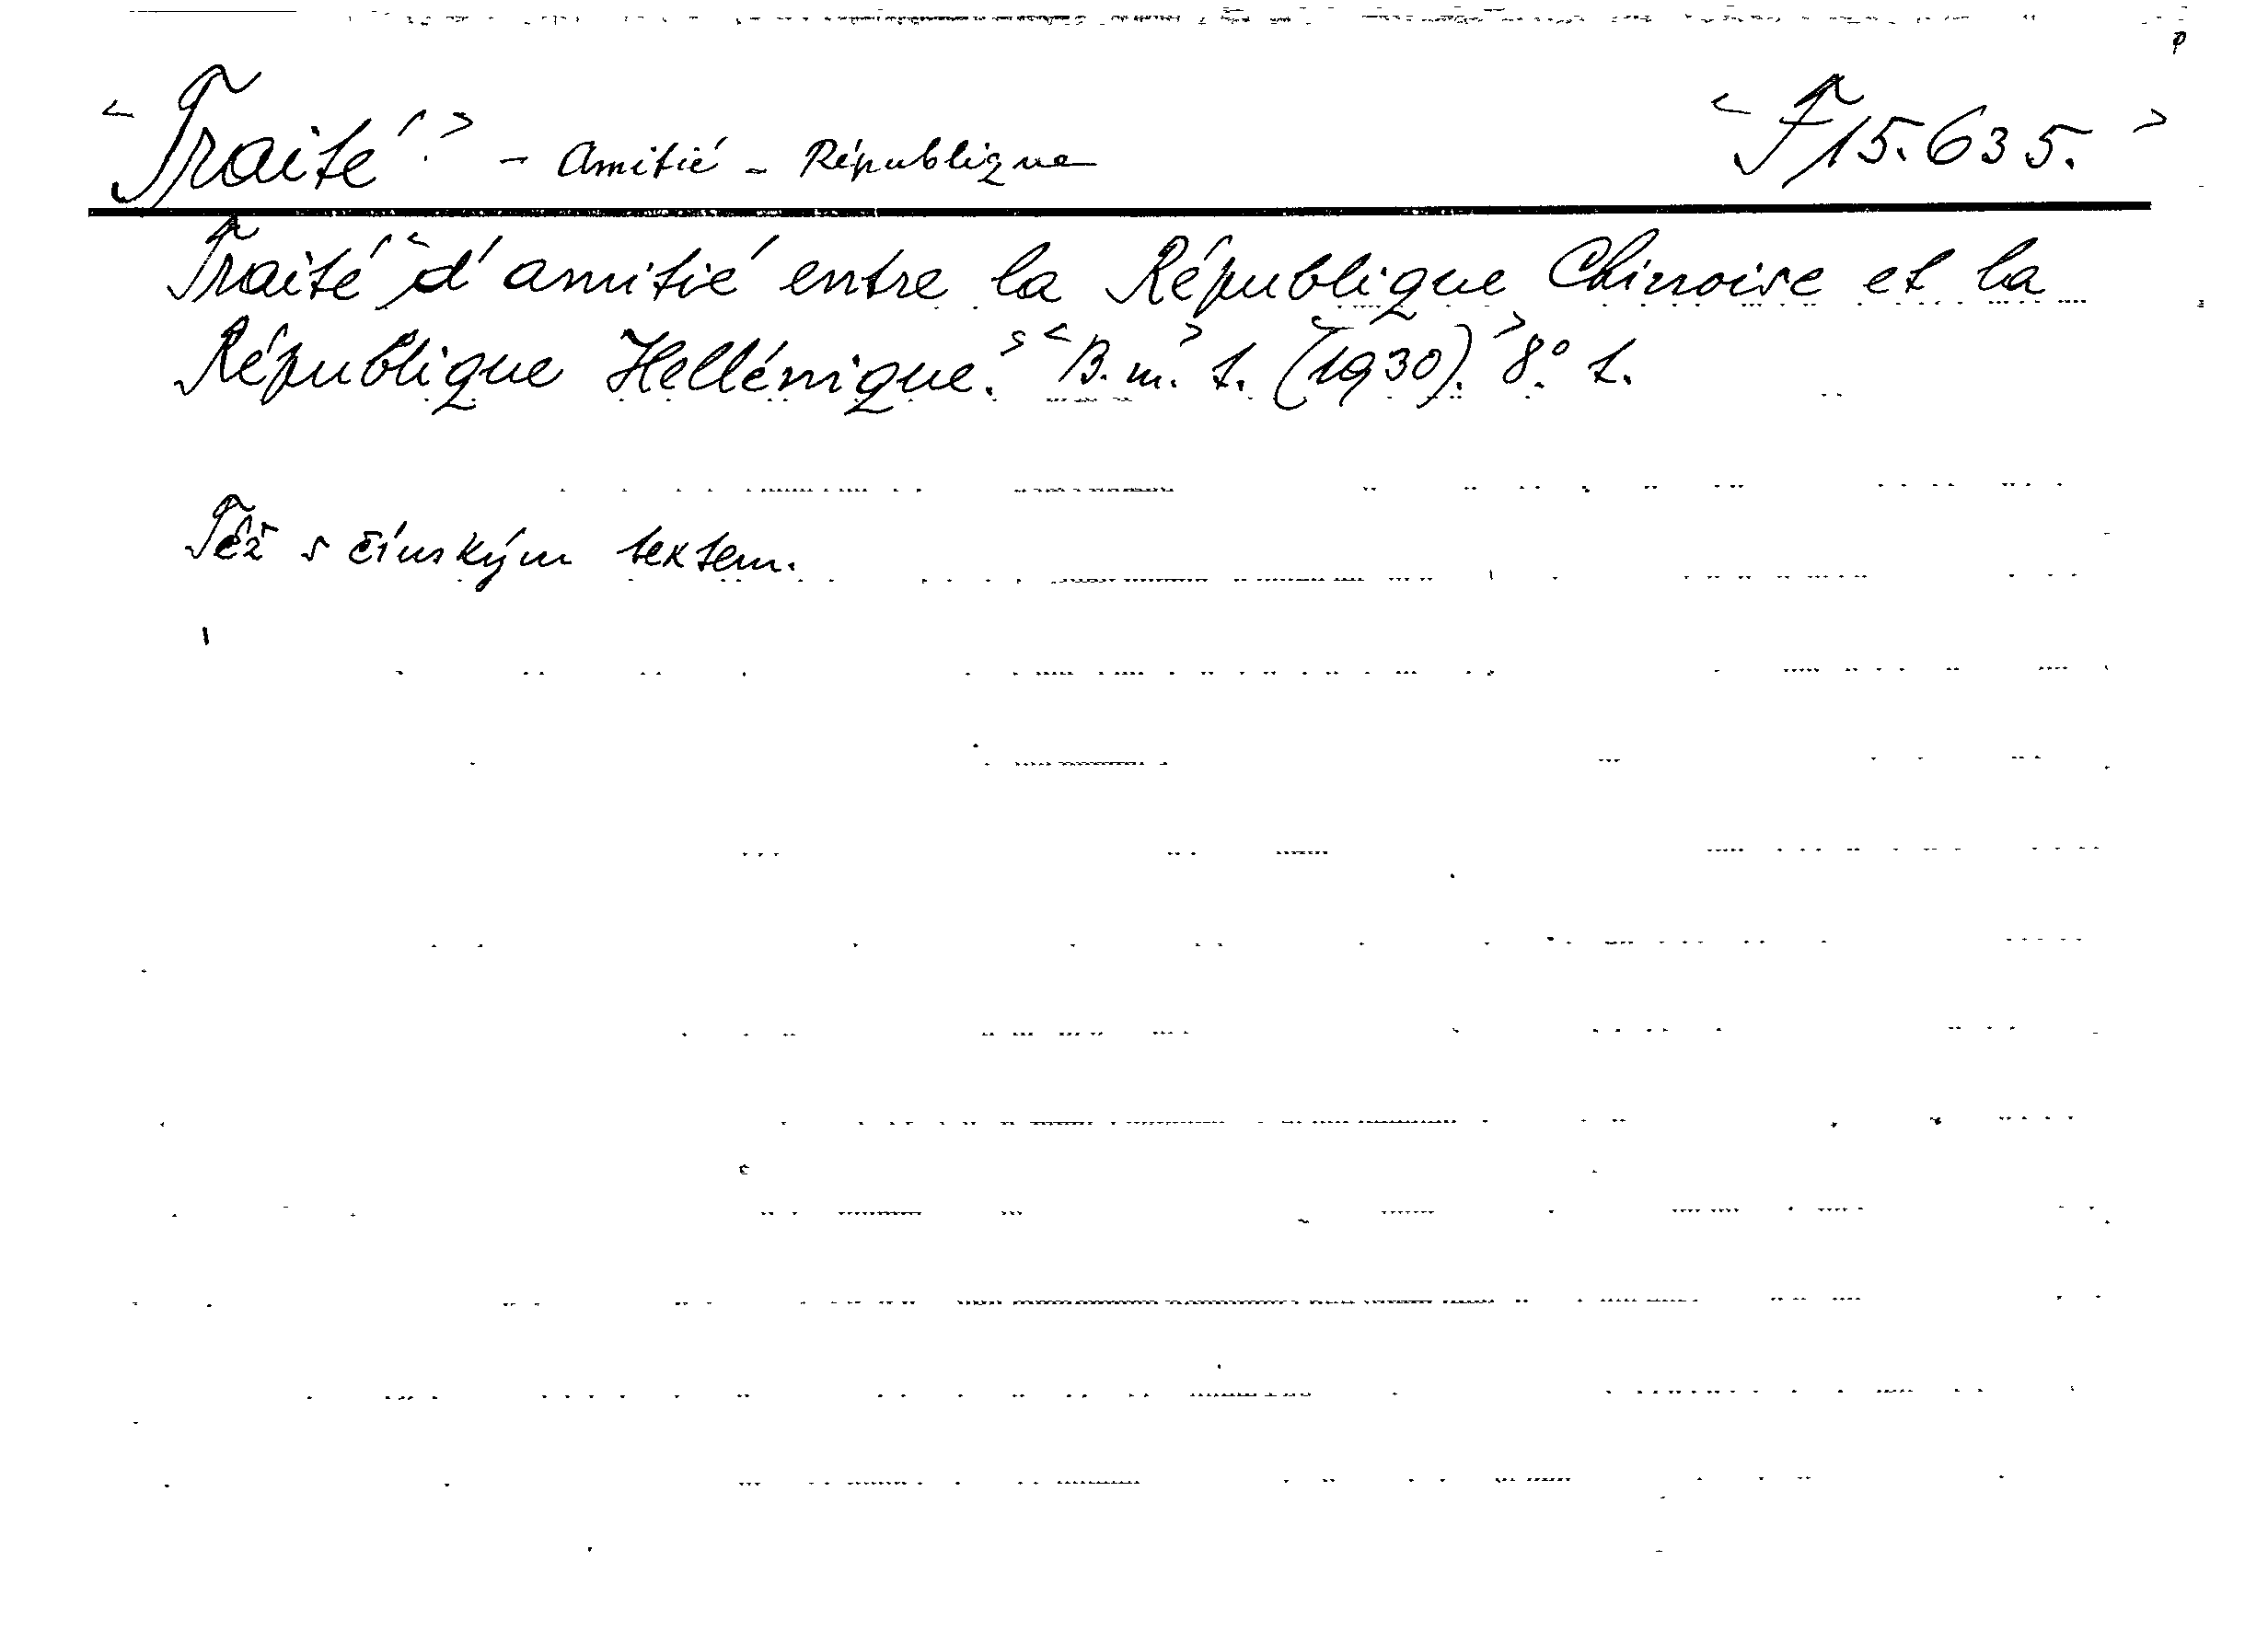 Traité. - Amitié - République F 15.635.
Traité d'amitié entre la République Chinoise et la
République Hellénique. B. m. t. (1930). 8° t.
Též s čínským textem.